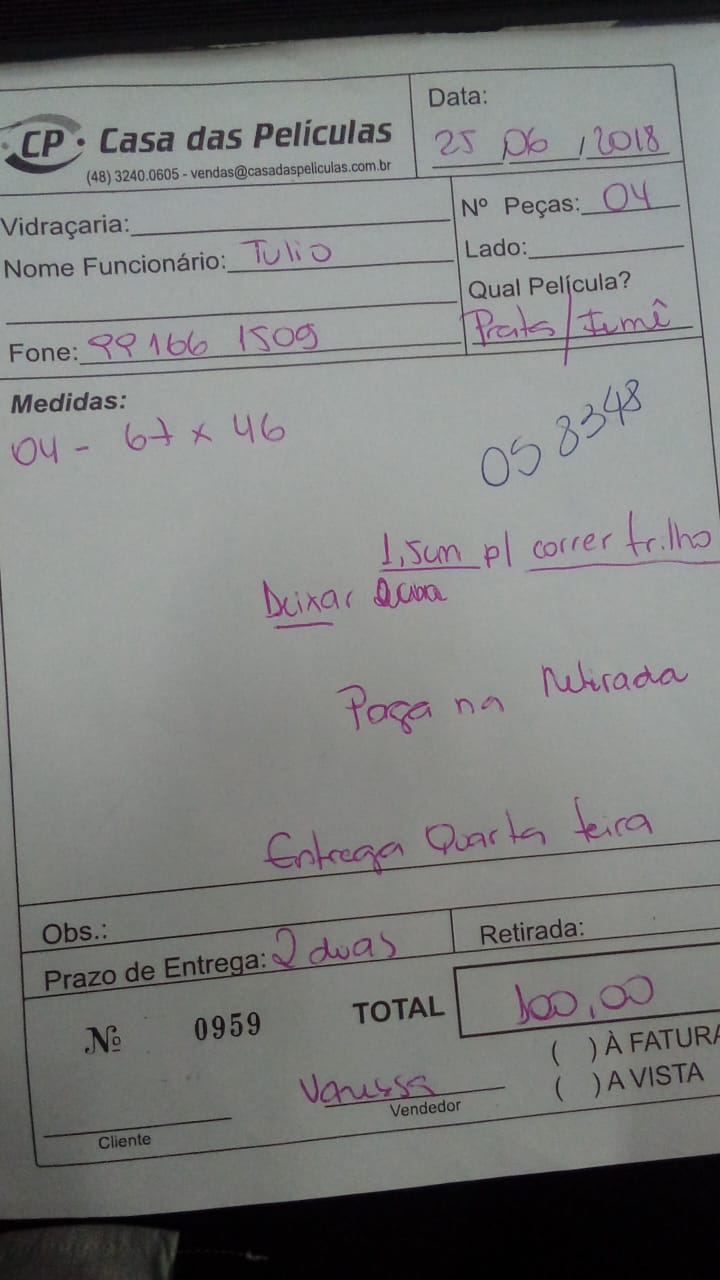 CP · Casa das Películas
(48) 3240.0605 - vendas@casadaspeliculas.com.br
Data:
25 / 06 / 2018
Vidraçaria:
Nome Funcionário: Tulio
Fone: 99166 1509
Nº Peças: 04
Lado:
Qual Película?
Prata / Fumê
Medidas:
04 - 67 x 46
058348
1,5cm p/ correr trilho
Deixar
Paga na Retirada
Entrega Quarta feira
Obs.:
Prazo de Entrega: 2 duas
Retirada:
Nº 0959
TOTAL 100,00
( ) À FATURA
( ) A VISTA
Vanessa
Vendedor
Cliente